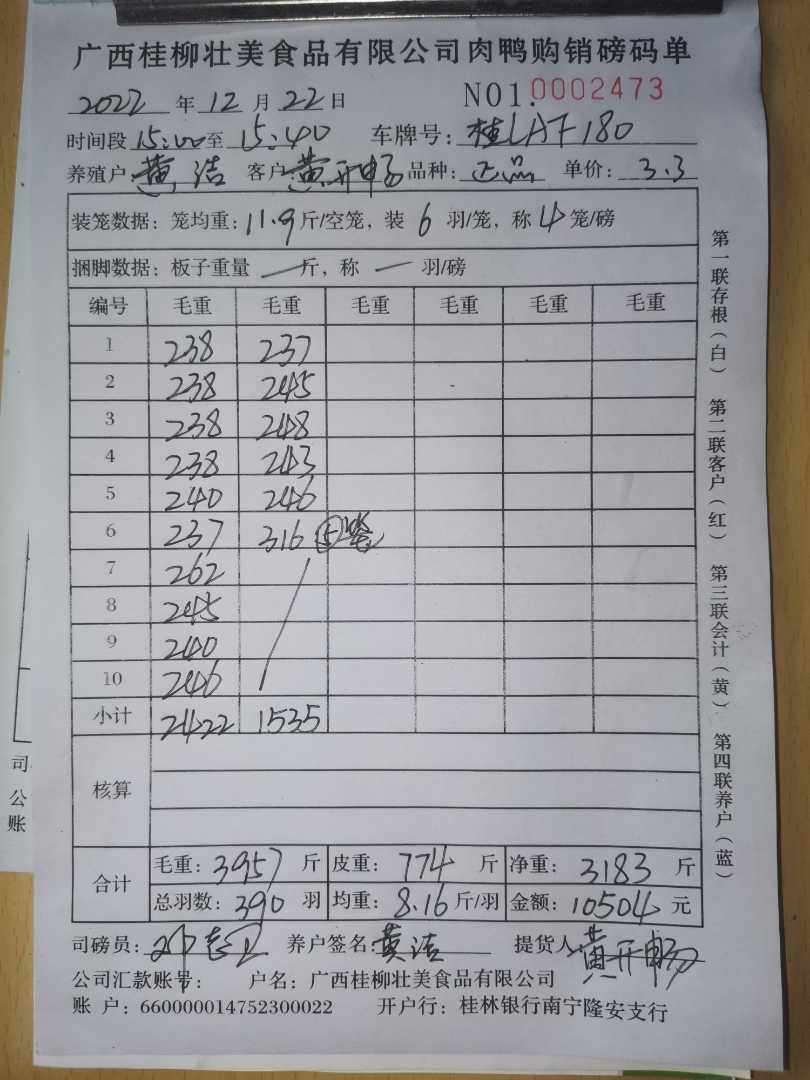 广西桂柳壮美食品有限公司肉鸭购销磅码单
2022 年 12 月 22 日 NO1.0002473
时间段 15:00 至 15:40 车牌号: 桂LAF180
养殖户 黄洁 客户: 黄开畅 品种: 正品 单价: 3.3
装笼数据: 笼均重: 11.9 斤/空笼, 装 6 羽/笼, 称 4 笼/磅
捆脚数据: 板子重量 — 斤, 称 — 羽/磅
编号 毛重 毛重 毛重 毛重 毛重 毛重
1 238 237
2 238 245
3 238 248
4 238 243
5 240 246
6 237 316 ⑤笼
7 262
8 245
9 240
10 246
小计 2422 1535
核算
合计 毛重: 3957 斤 皮重: 774 斤 净重: 3183 斤
总羽数: 390 羽 均重: 8.16 斤/羽 金额: 10504 元
司磅员: 养户签名: 黄洁 提货人: 黄开畅
公司汇款账号: 户名: 广西桂柳壮美食品有限公司
账 户: 660000014752300022 开户行: 桂林银行南宁隆安支行
第一联存根(白) 第二联客户(红) 第三联会计(黄) 第四联养户(蓝)
司
公
账